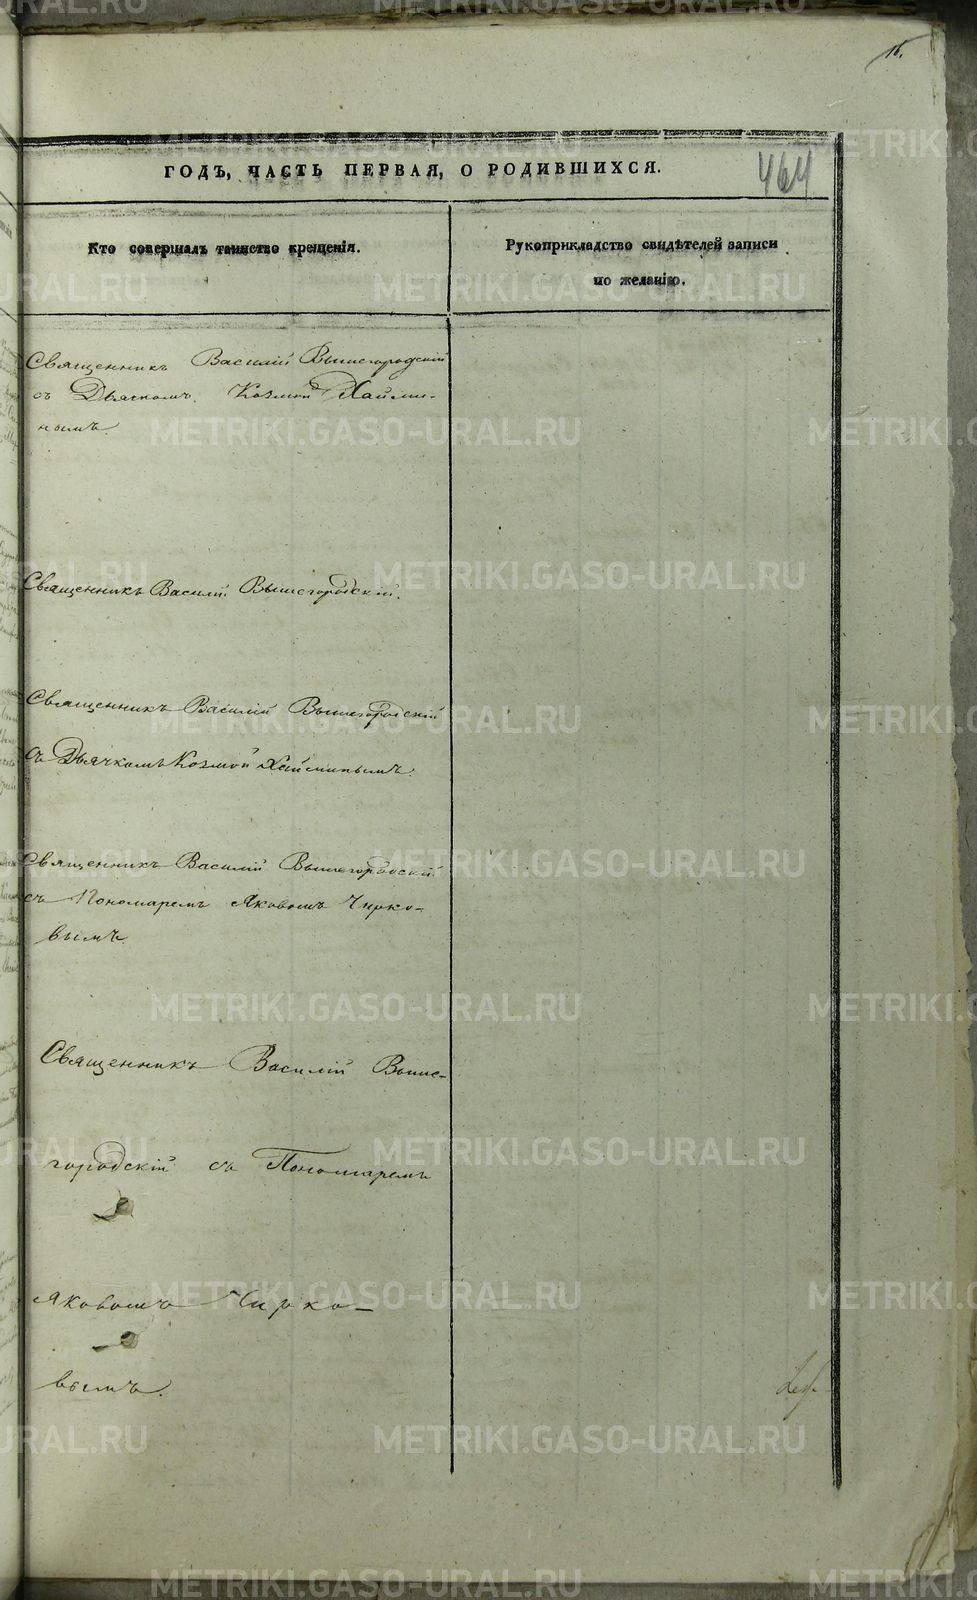 16.
ГОДЪ, ЧАСТЬ ПЕРВАЯ, О РОДИВШИХСЯ.
464
Кто совершалъ таинство крещенія.
Рукоприкладство свидѣтелей записи
по желанію.
Священникъ Василій Вышегородскій
съ Дьячкомъ Козмой Хайми-
нымъ.
Священникъ Василій Вышегородскій.
Священникъ Василій Вышегородскій
съ Дьячкомъ Козмой Хайминымъ.
Священникъ Василій Вышегородскій
съ Пономаремъ Яковомъ Чирко-
вымъ
Священникъ Василій Выше-
городскій съ Пономаремъ
Яковомъ Чирко-
вымъ.
METRIKI.GASO-URAL.RU